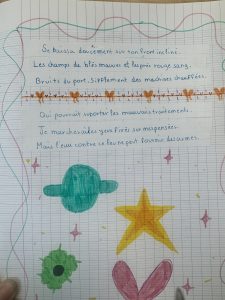 Se baissa doucement sur son front incliné.
Les champs de blés mauves et les prés rouge sang.
Bruits du port. Sifflement des machines chauffées.
Qui pourrait supporter les mauvais traitements.
Je marcherai les yeux fixés sur mes pensées.
Mais l'eau contre ce feu ne peut fournir des armes.